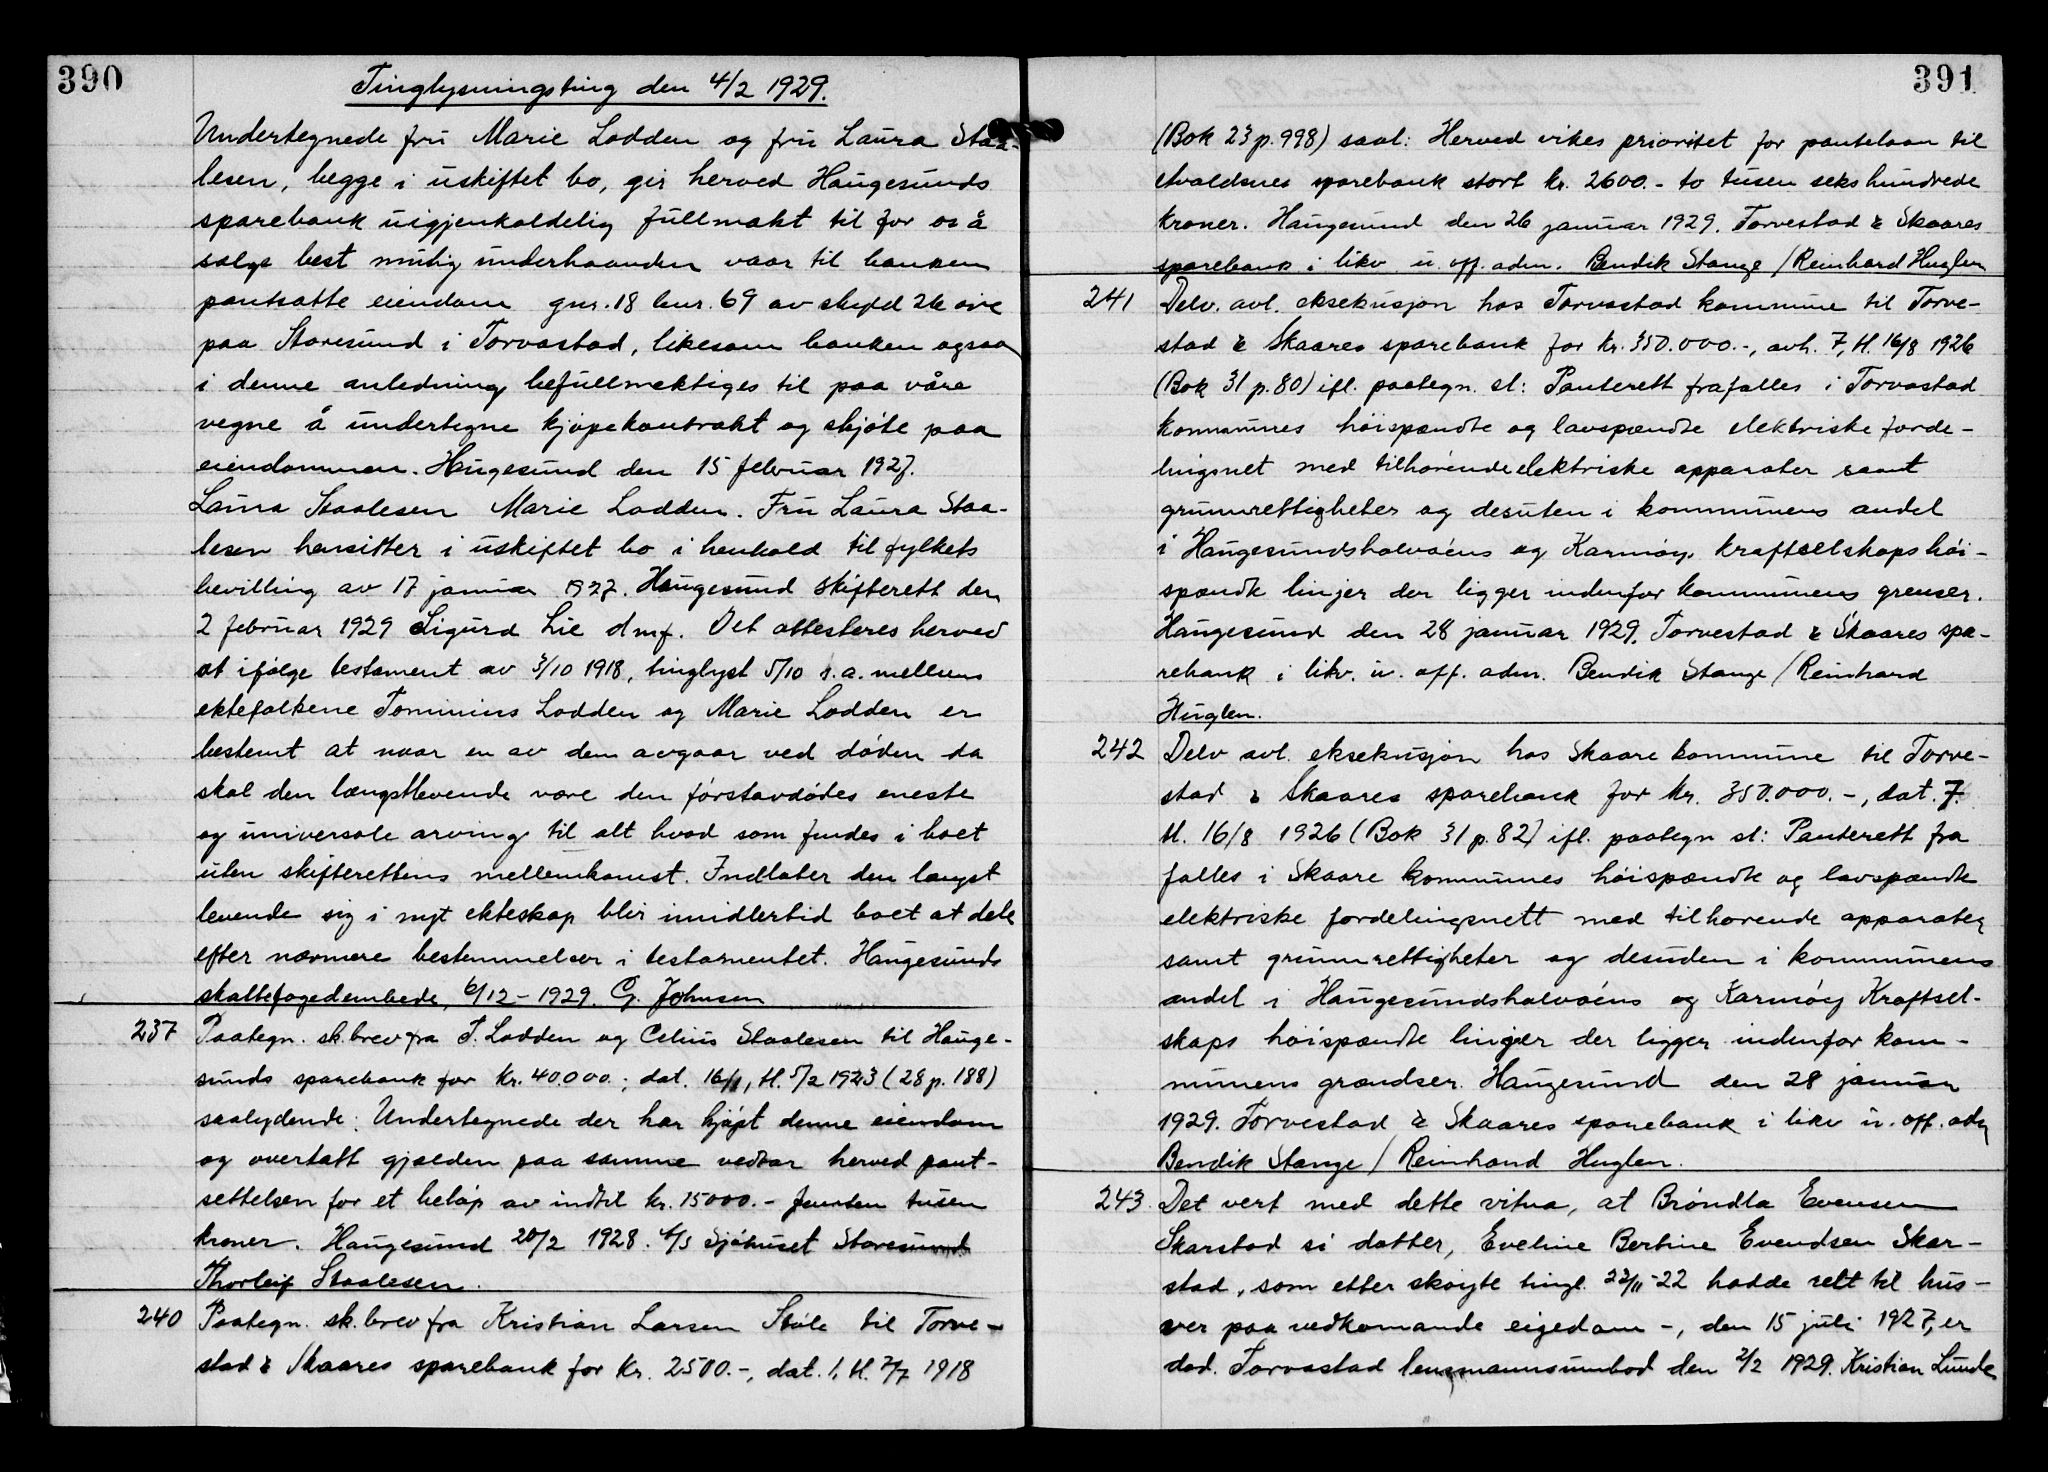 390
Tinglysningsting den 4/2 1929.
Undertegnede fru Marie Lodden og fru Laura Staa-
lesen, begge i uskiftet bo, gir herved Haugesunds
sparebank uigjenkaldelig fullmakt til for os å
salge best mulig underhaanden vaar til banken
pantsatte eiendom gnr. 18 bnr. 69 av skyld 26 øre
paa Storesund i Torvastad, likesom banken ogsaa
i denne anledning befullmektiges til paa våre
vegne å undertegne kjøpekontrakt og skjøte paa
eiendommen. Haugesund den 15 februar 1927.
Laura Staalesen Marie Lodden. Fru Laura Staa-
lesen hensitter i uskiftet bo i henhold til fylkets
bevilling av 17 januar 1927. Haugesund skifterett den
2 februar 1929 Sigurd Lie dmf. Det attesteres herved
at ifølge testament av 3/10 1918, tinglyst 5/10 s.a. mellem
ektefolkene Tominius Lodden og Marie Lodden er
bestemt at naar en av dem avgaar ved døden da
skal den længstlevende være den førstavdødes eneste
og universale arving til alt hvad som findes i boet
uten skifterettens mellemkomst. Indlater den længst
levende sig i nyt ekteskap blir imidlertid boet at dele
efter nærmere bestemmelser i testamentet. Haugesunds
skattefogedembede, 6/12-1929. G. Johnsen
237 Paategn. sk.brev fra T. Lodden og Celius Staalesen til Hauge-
sunds sparebank for kr. 40.000.; dat. 16/1, tl. 5/2 1923 (28 p. 188)
saalydende: Undertegnede der har kjøpt denne eiendom
og overtatt gjælden paa samme vedtar herved pant-
settelsen for et beløp av indtil kr. 15000.- femten tusen
kroner. Haugesund 20/2 1928. A/S Sjøhuset Storesund
Thorleif Staalesen.
240 Paategn. sk.brev fra Kristian Larsen Støle til Torve-
stad & Skaares sparebank for kr. 2500.-, dat. 1, tl. 2/7 1918
391
(Bok 23 p. 998) saal: Herved vikes prioritet for pantelaan til
Avaldsnes sparebank stort kr. 2600.- to tusen seks hundrede
kroner. Haugesund den 26 januar 1929. Torvestad & Skaares
sparebank i likv. u. off. adm. Bendik Stange / Reinhard Huglen
241 Delv. avl. eksekusjon hos Torvastad kommune til Torve-
stad & Skaares sparebank for kr. 350.000.-, avh. 7, tl. 16/8 1926
(Bok 31 p. 80) ifl. paategn. sl: Panterett frafalles i Torvastad
kommunes høispændte og lavspændte elektriske forde-
lingsnet med tilhørende elektriske apparater samt
grunnrettigheter og desuten i kommunens andel
i Haugesundshalvøens og Karmøy kraftselskaps høi-
spændte linjer der ligger indenfor kommunens grenser.
Haugesund den 28 januar 1929. Torvestad & Skaares spa-
rebank i likv. u. off. adm. Bendik Stange / Reinhard
Huglen.
242 Delv avl. eksekusjon hos Skaare kommune til Torve-
stad & Skaares sparebank for kr. 350.000.-, dat. 7.
tl. 16/8 1926 (Bok 31 p. 82) ifl. paategn sl: Panterett fra
falles i Skaare kommunes høispændte og lavspændte
elektriske fordelingsnett med tilhørende apparater
samt grunnrettigheter og desuden i kommunens
andel i Haugesundshalvøens og Karmøy Kraftsel-
skaps høispændte linjer der ligger indenfor kom-
munens grændser. Haugesund den 28 januar
1929. Torvestad & Skaares sparebank i likv u. off. adm
Bendik Stange / Reinhard Huglen.
243 Det vert med dette vitna, at Brøndla Evensen
Skarstad si datter, Eveline Bertine Evendsen Skar-
stad, som etter skøyte tingl. 22/11-22 hadde rett til hus-
vær paa vedkomande eigedom -, den 15 juli 1927, er
død. Torvastad lensmannsumbod den 2/2 1929. Kristian Lunde